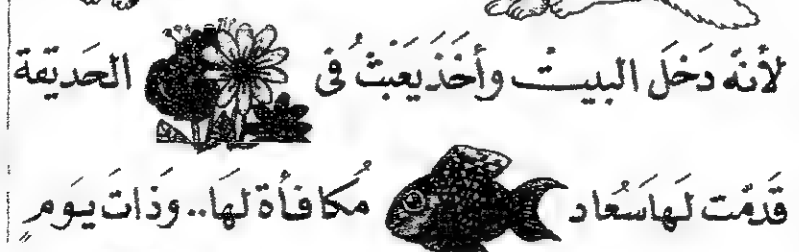 لأنَّه دَخَلَ البيتَ وأخَذَ يَعْبَثُ فى الحَديقة
قَدمّت لَها سَعُاد مُكافأة لهَا.. وَذاتَ يَوَمٍ